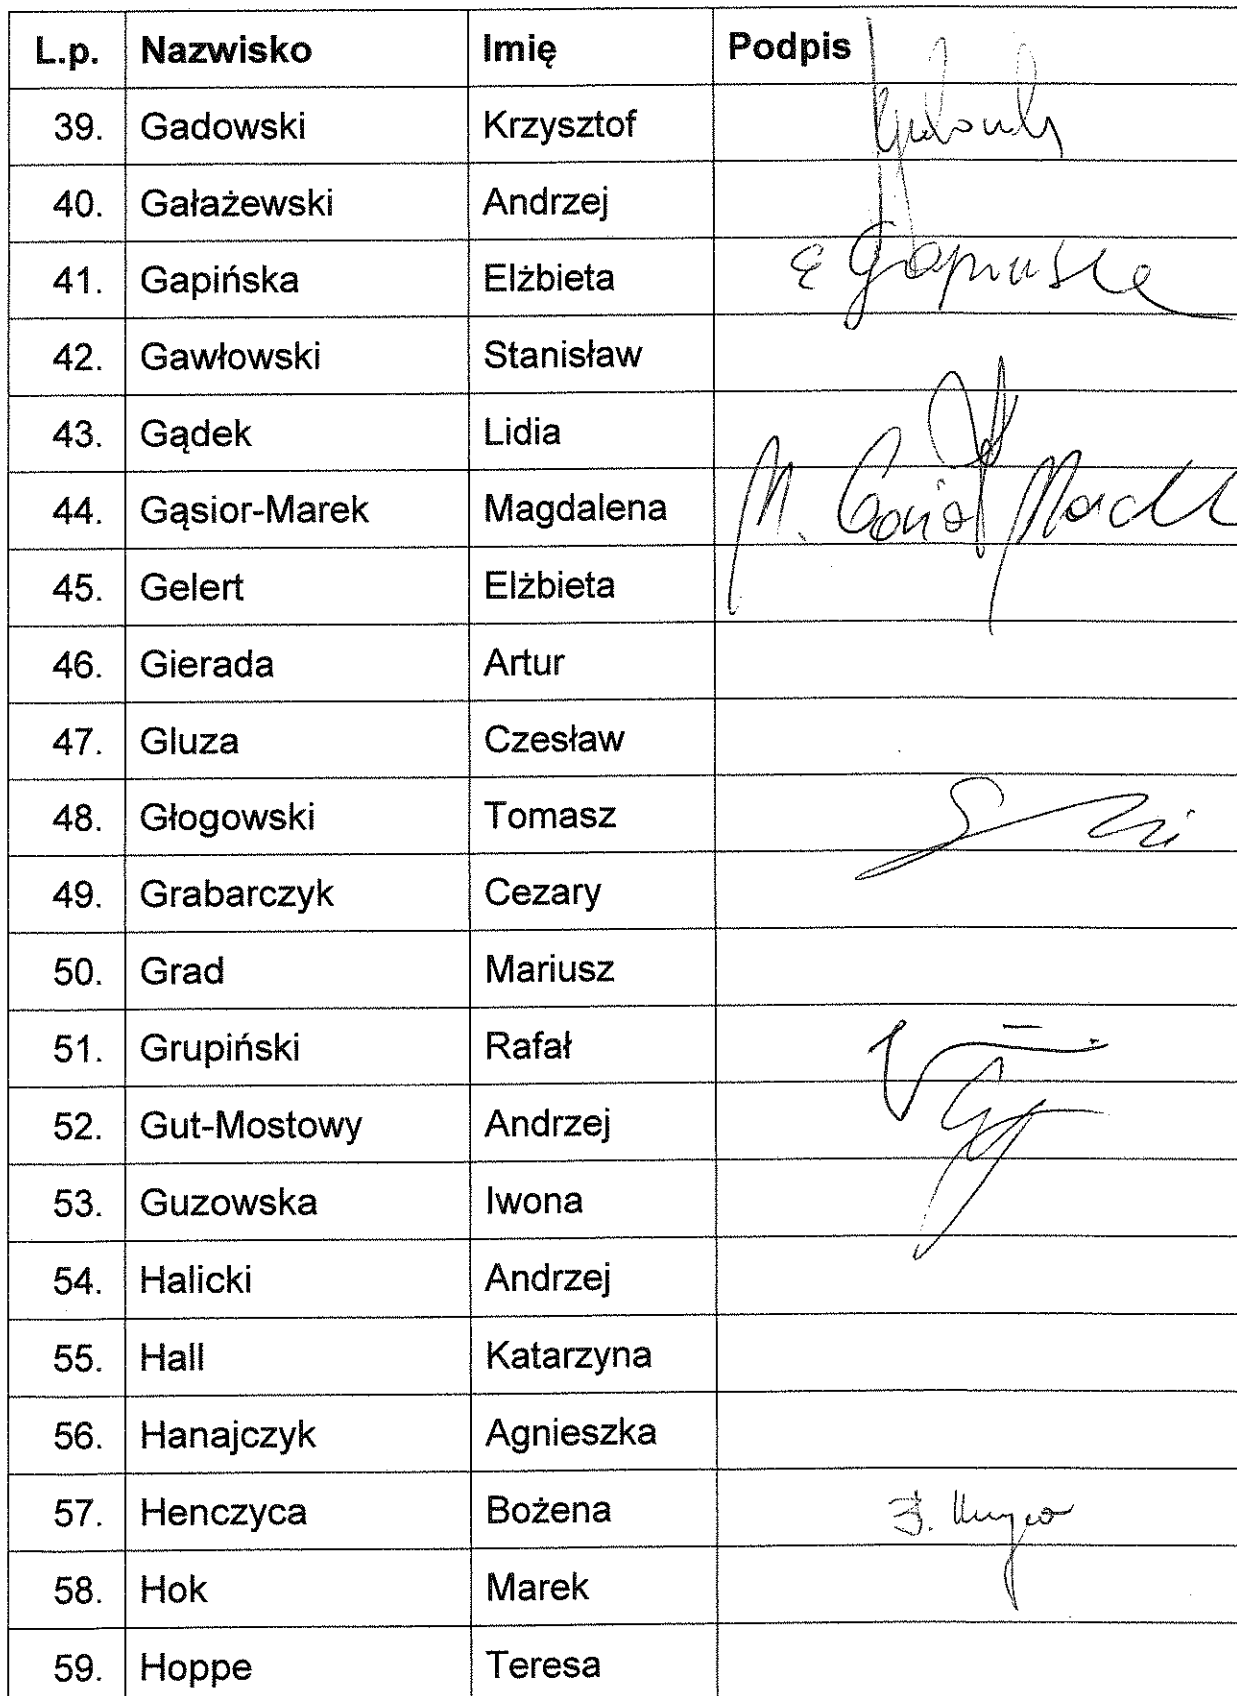 L.p. Nazwisko Imię Podpis
39. Gadowski Krzysztof
40. Gałażewski Andrzej
41. Gapińska Elżbieta
42. Gawłowski Stanisław
43. Gądek Lidia
44. Gąsior-Marek Magdalena
45. Gelert Elżbieta
46. Gierada Artur
47. Gluza Czesław
48. Głogowski Tomasz
49. Grabarczyk Cezary
50. Grad Mariusz
51. Grupiński Rafał
52. Gut-Mostowy Andrzej
53. Guzowska Iwona
54. Halicki Andrzej
55. Hall Katarzyna
56. Hanajczyk Agnieszka
57. Henczyca Bożena
58. Hok Marek
59. Hoppe Teresa